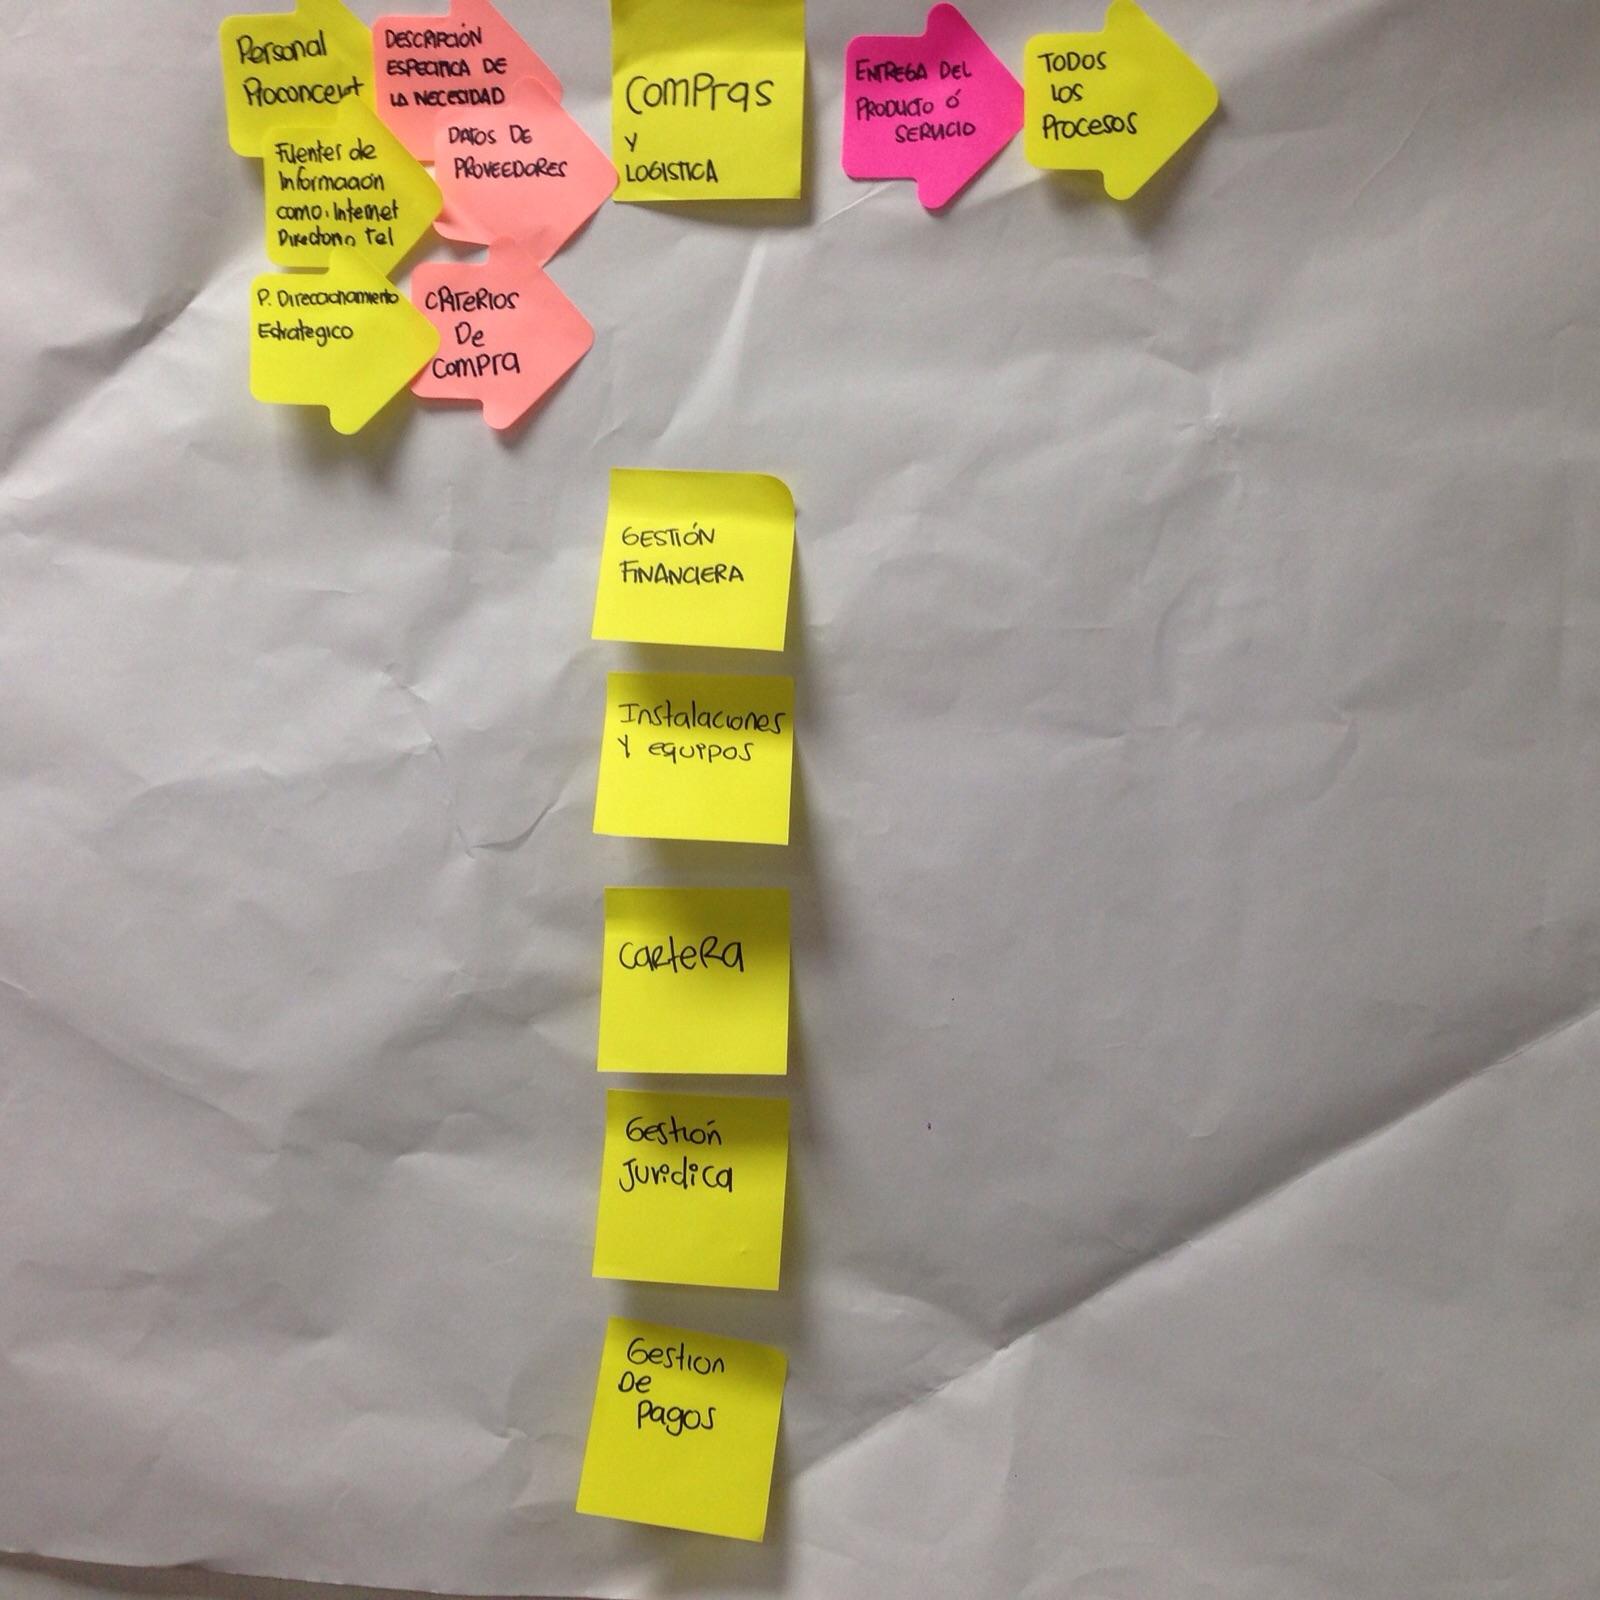 Personal
Proconcert
DESCRIPCIÓN
ESPECIFICA DE
LA NECESIDAD
Fuentes de
Información
como: Internet
Directorio, Tel
DATOS DE
PROVEEDORES
P. Direccionamiento
Estrategico
CRITERIOS
De
Compra
Compras
Y
LOGISTICA
ENTREGA DEL
PRODUCTO Ó
SERVICIO
TODOS
LOS
PROCESOS
GESTIÓN
FINANCIERA
Instalaciones
Y equipos
Cartera
Gestión
Juridica
Gestion
De
Pagos